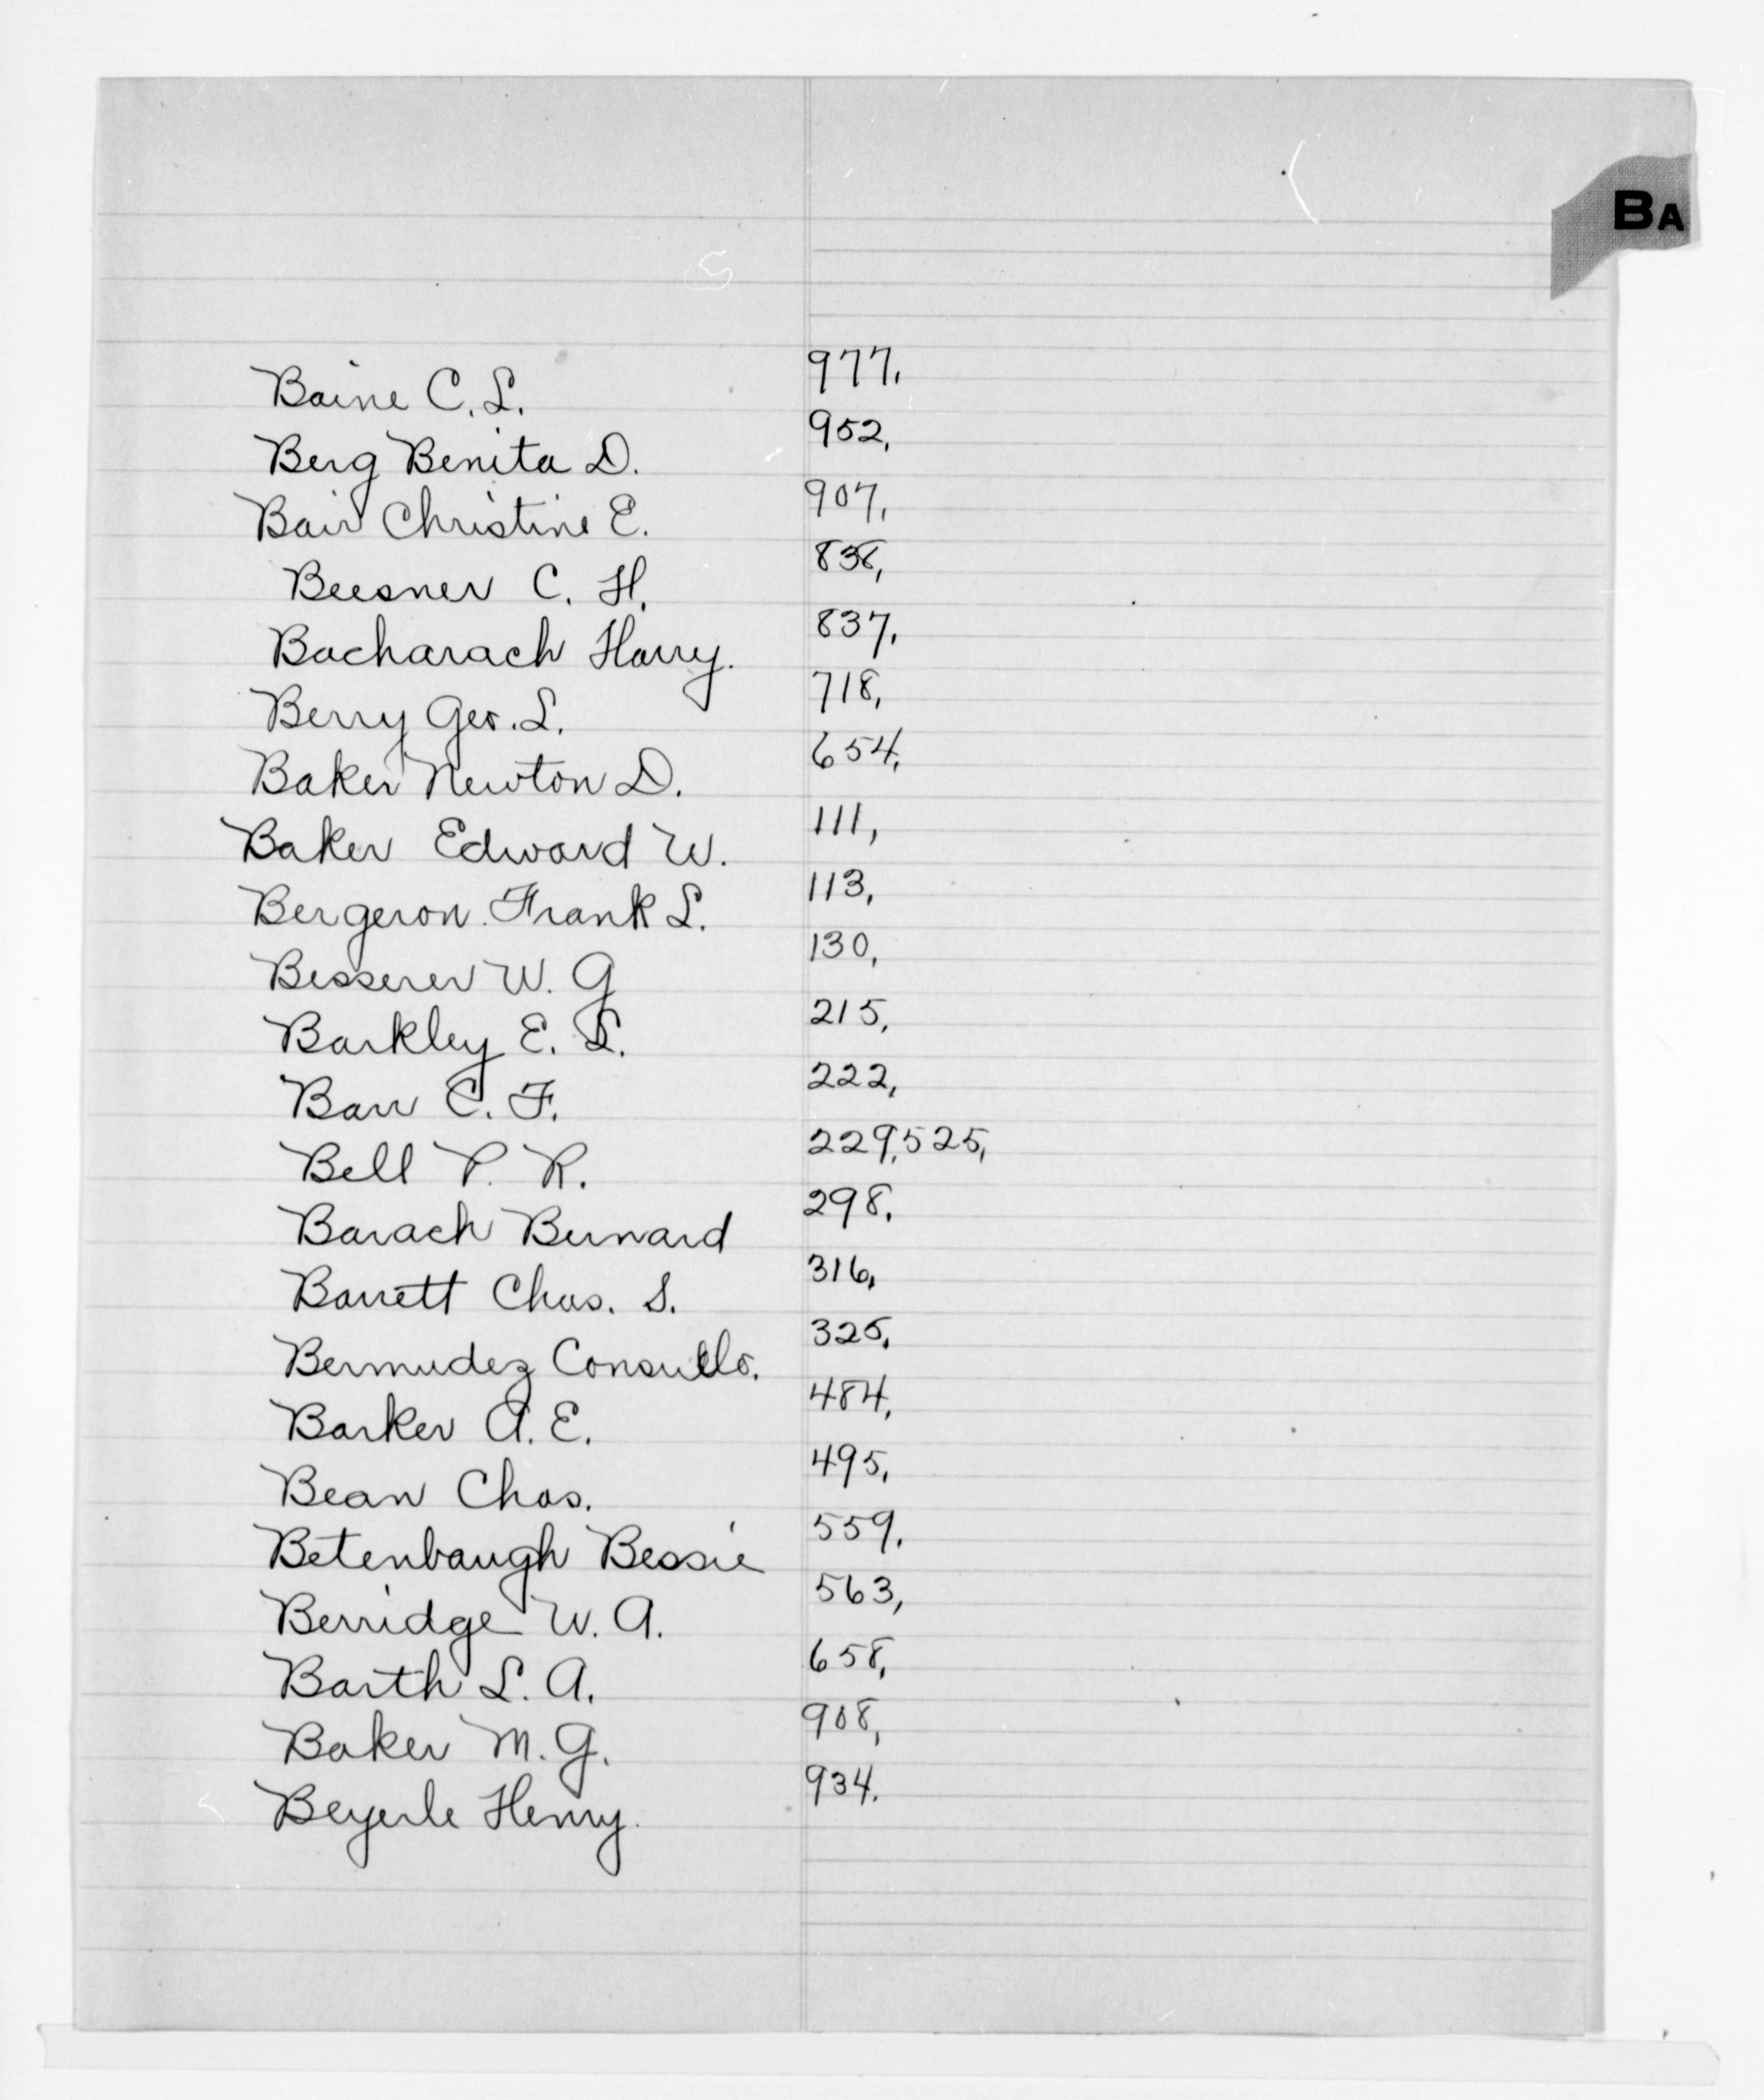 BA
Baine C. L. 977,
Berg Benita D. 952,
Bair Christine E. 907,
Beesner C. H. 838,
Bacharach Harry. 837,
Berry Geo. L. 718,
Baker Newton D. 654,
Baker Edward W. 111,
Bergeron Frank L. 113,
Besserer W. G 130,
Barkley E. L. 215,
Barr C. F. 222,
Bell P. R. 229, 525,
Barach Bernard 298,
Barrett Chas. S. 316,
Bermudez Consuello. 325,
Barker A. E. 484,
Bean Chas. 495,
Betenbaugh Bessie 559,
Berridge W. A. 563,
Barth L. A. 658,
Baker M. G. 908,
Beyerle Henry. 934.